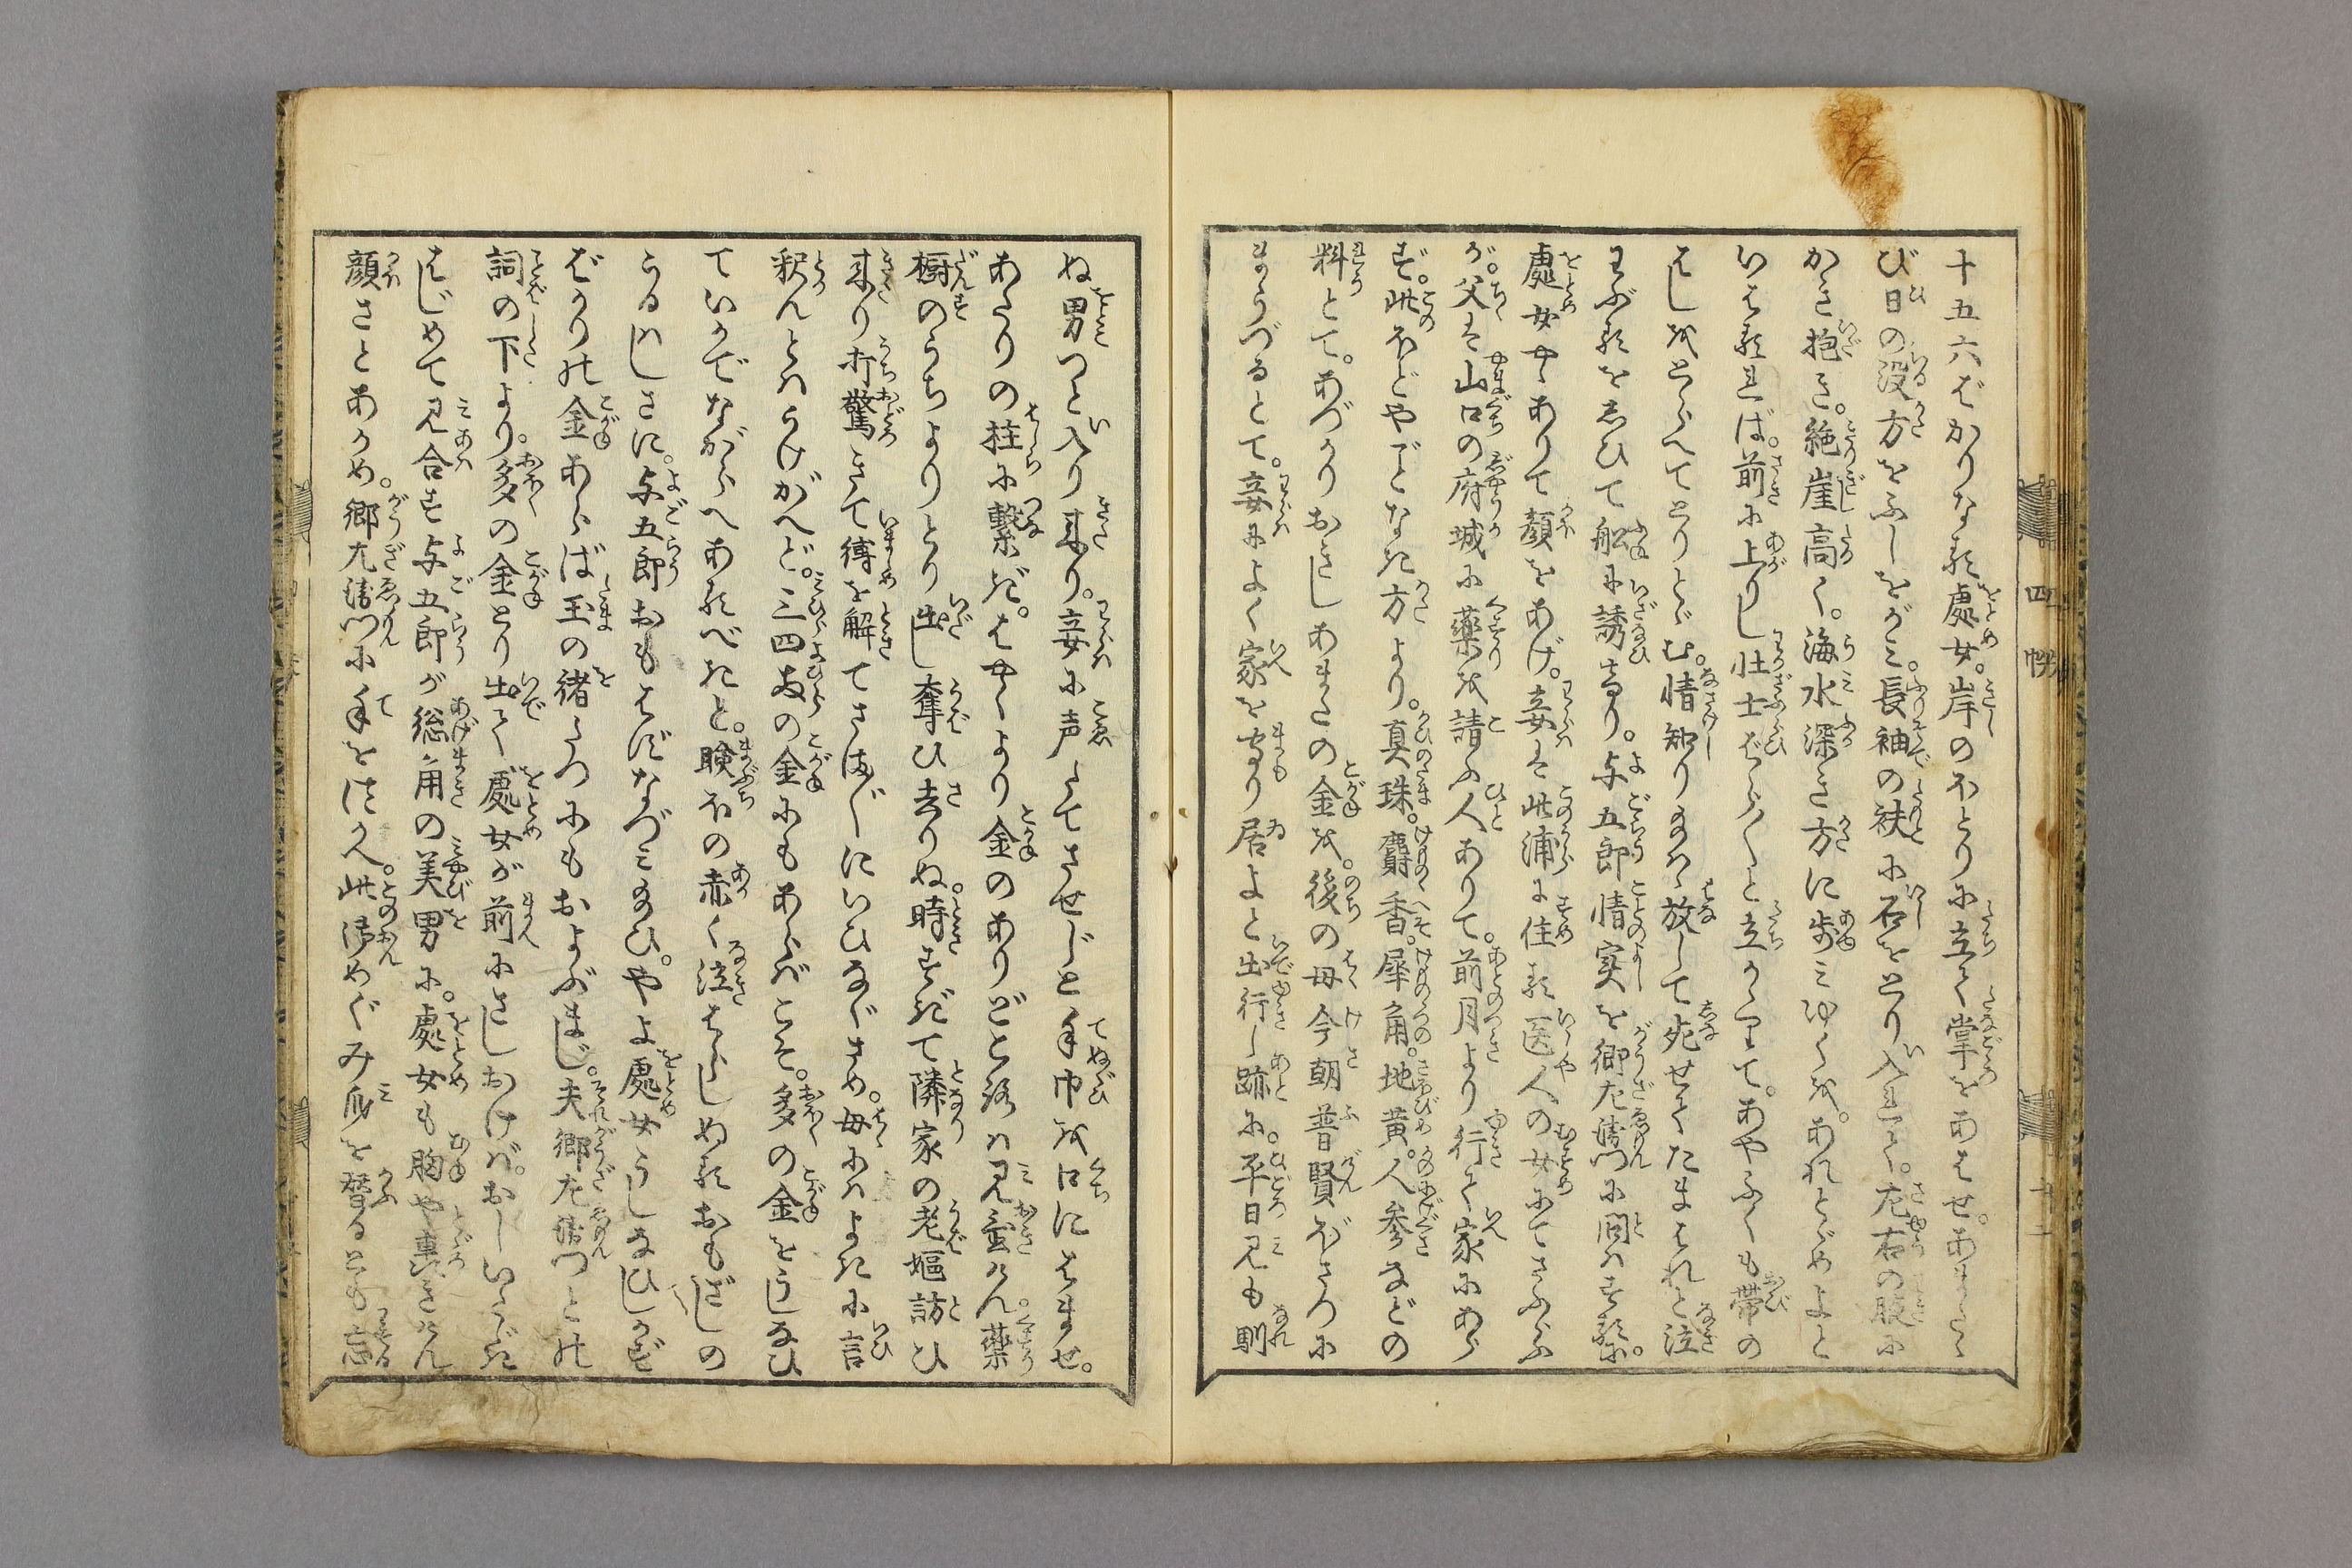 十五六ばかりなる處女。岸のほとりに立て掌をあはせ。あまたゝ
び日の没方をふしをがミ。長袖の袂に石をとり入れて。左右の股に
かき抱き。絶崖高く。海水深き方に歩ミゆくを。あれとゞめよと
いはるれば。前に上りし壮士ばら〳〵と立かゝりて。あやふくも帯の
はしをとらへてとりとゞむ。情知り給はゞ放して死せてたまはれと泣
さぶるをしひて船に誘なり。与五郎情実を郷左衛門に問はするに。
處女やゝありて顔をあげ。妾は此浦に住る医人の女にてさふらふ
が。父は山口の府城に薬を請ふ人ありて。前月より行て家にあら
ず。此ほどやごとなき方より。真珠。麝香。犀角。地黄。人参などの
料とて。あづかりおきしあまたの金を。後の母今朝普賢ぼさつに
まうづるとて。妾によく家を守り居よと出行し跡に。平日見も馴
ぬ男つと入り来り。妾に声たてさせじと手巾を口にはませ。
あたりの柱に繋ぎ。はやくより金のありどころは見置けん薬
櫥のうちよりとり出し奪ひ去りぬ。時すぎて隣家の老嫗訪ひ
来り打驚きて縛を解てさま〴〵にいひなぐさめ。母にはよきに言
釈んとはうけがへど。三四両の金にもあらばこそ。多の金をうしなひ
ていかでながらへあるべきと。瞼ほの赤く泣はらしぬるおもざしの
うるはしさに。与五郎おもはずなづミ給ひ。やよ處女うしなひしかず
ばかりの金あらば玉の緒たつにもおよぶまじ。夫郷左衛門との
詞の下より。多の金とり出て處女が前にさしおけば。おしいたゞき
はじめて見合す与五郎が総角の美男に。處女も胸や轟きけん
顔さとあかめ。郷左衛門に手をつかへ。此御めぐみ身を替るとも忘
四帙
十二